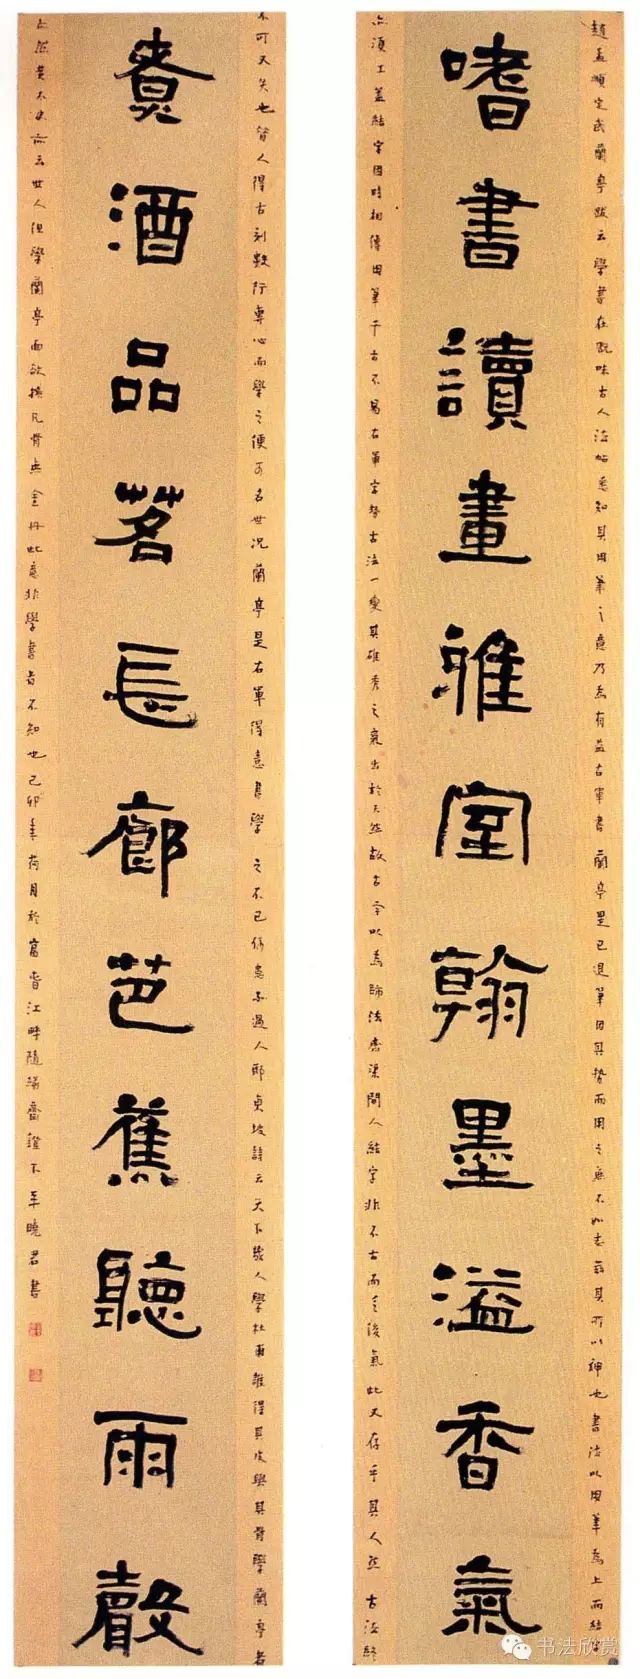 趙孟頫定武蘭亭跋云學書在玩味古人法帖悉知其用筆之意乃為有益右軍書蘭亭是已退筆因其勢而用之無不如志茲其所以神也書法以用筆為上而結字
嗜書讀畫雅室翰墨溢香氣
亦須工蓋結字因時相傳用筆千古不易右軍字勢古法一變其雄秀之氣出於天然故古今以為師法齊梁間人結字非不古而乏俊氣此又存乎其人然古法終
不可失也昔人得古刻數行專心而學之便可名世況蘭亭是右軍得意書學之不已何患不過人耶東坡詩云天下幾人學杜甫誰得其皮與其骨學蘭亭者
酒品茗長廊芭蕉聽雨聲
亦然黃太史亦云世人但學蘭亭面欲換凡骨無金丹此意非學書者不知也己卯年荷月於富春江畔隨齋燈下羊曉君書
书法欣赏